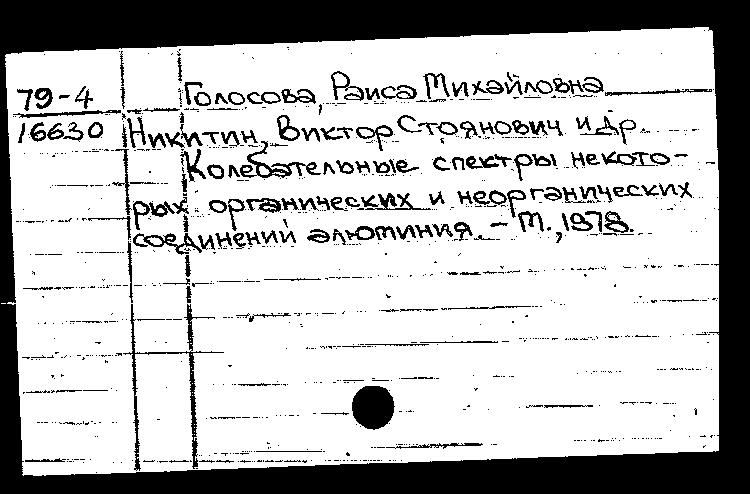 79-4
16630
Голосова, Раиса Михайловна
Никитин, Виктор Стоянович и др.
Колебательные спектры некото-
рых органических и неорганических
соединений алюминия. - М., 1978